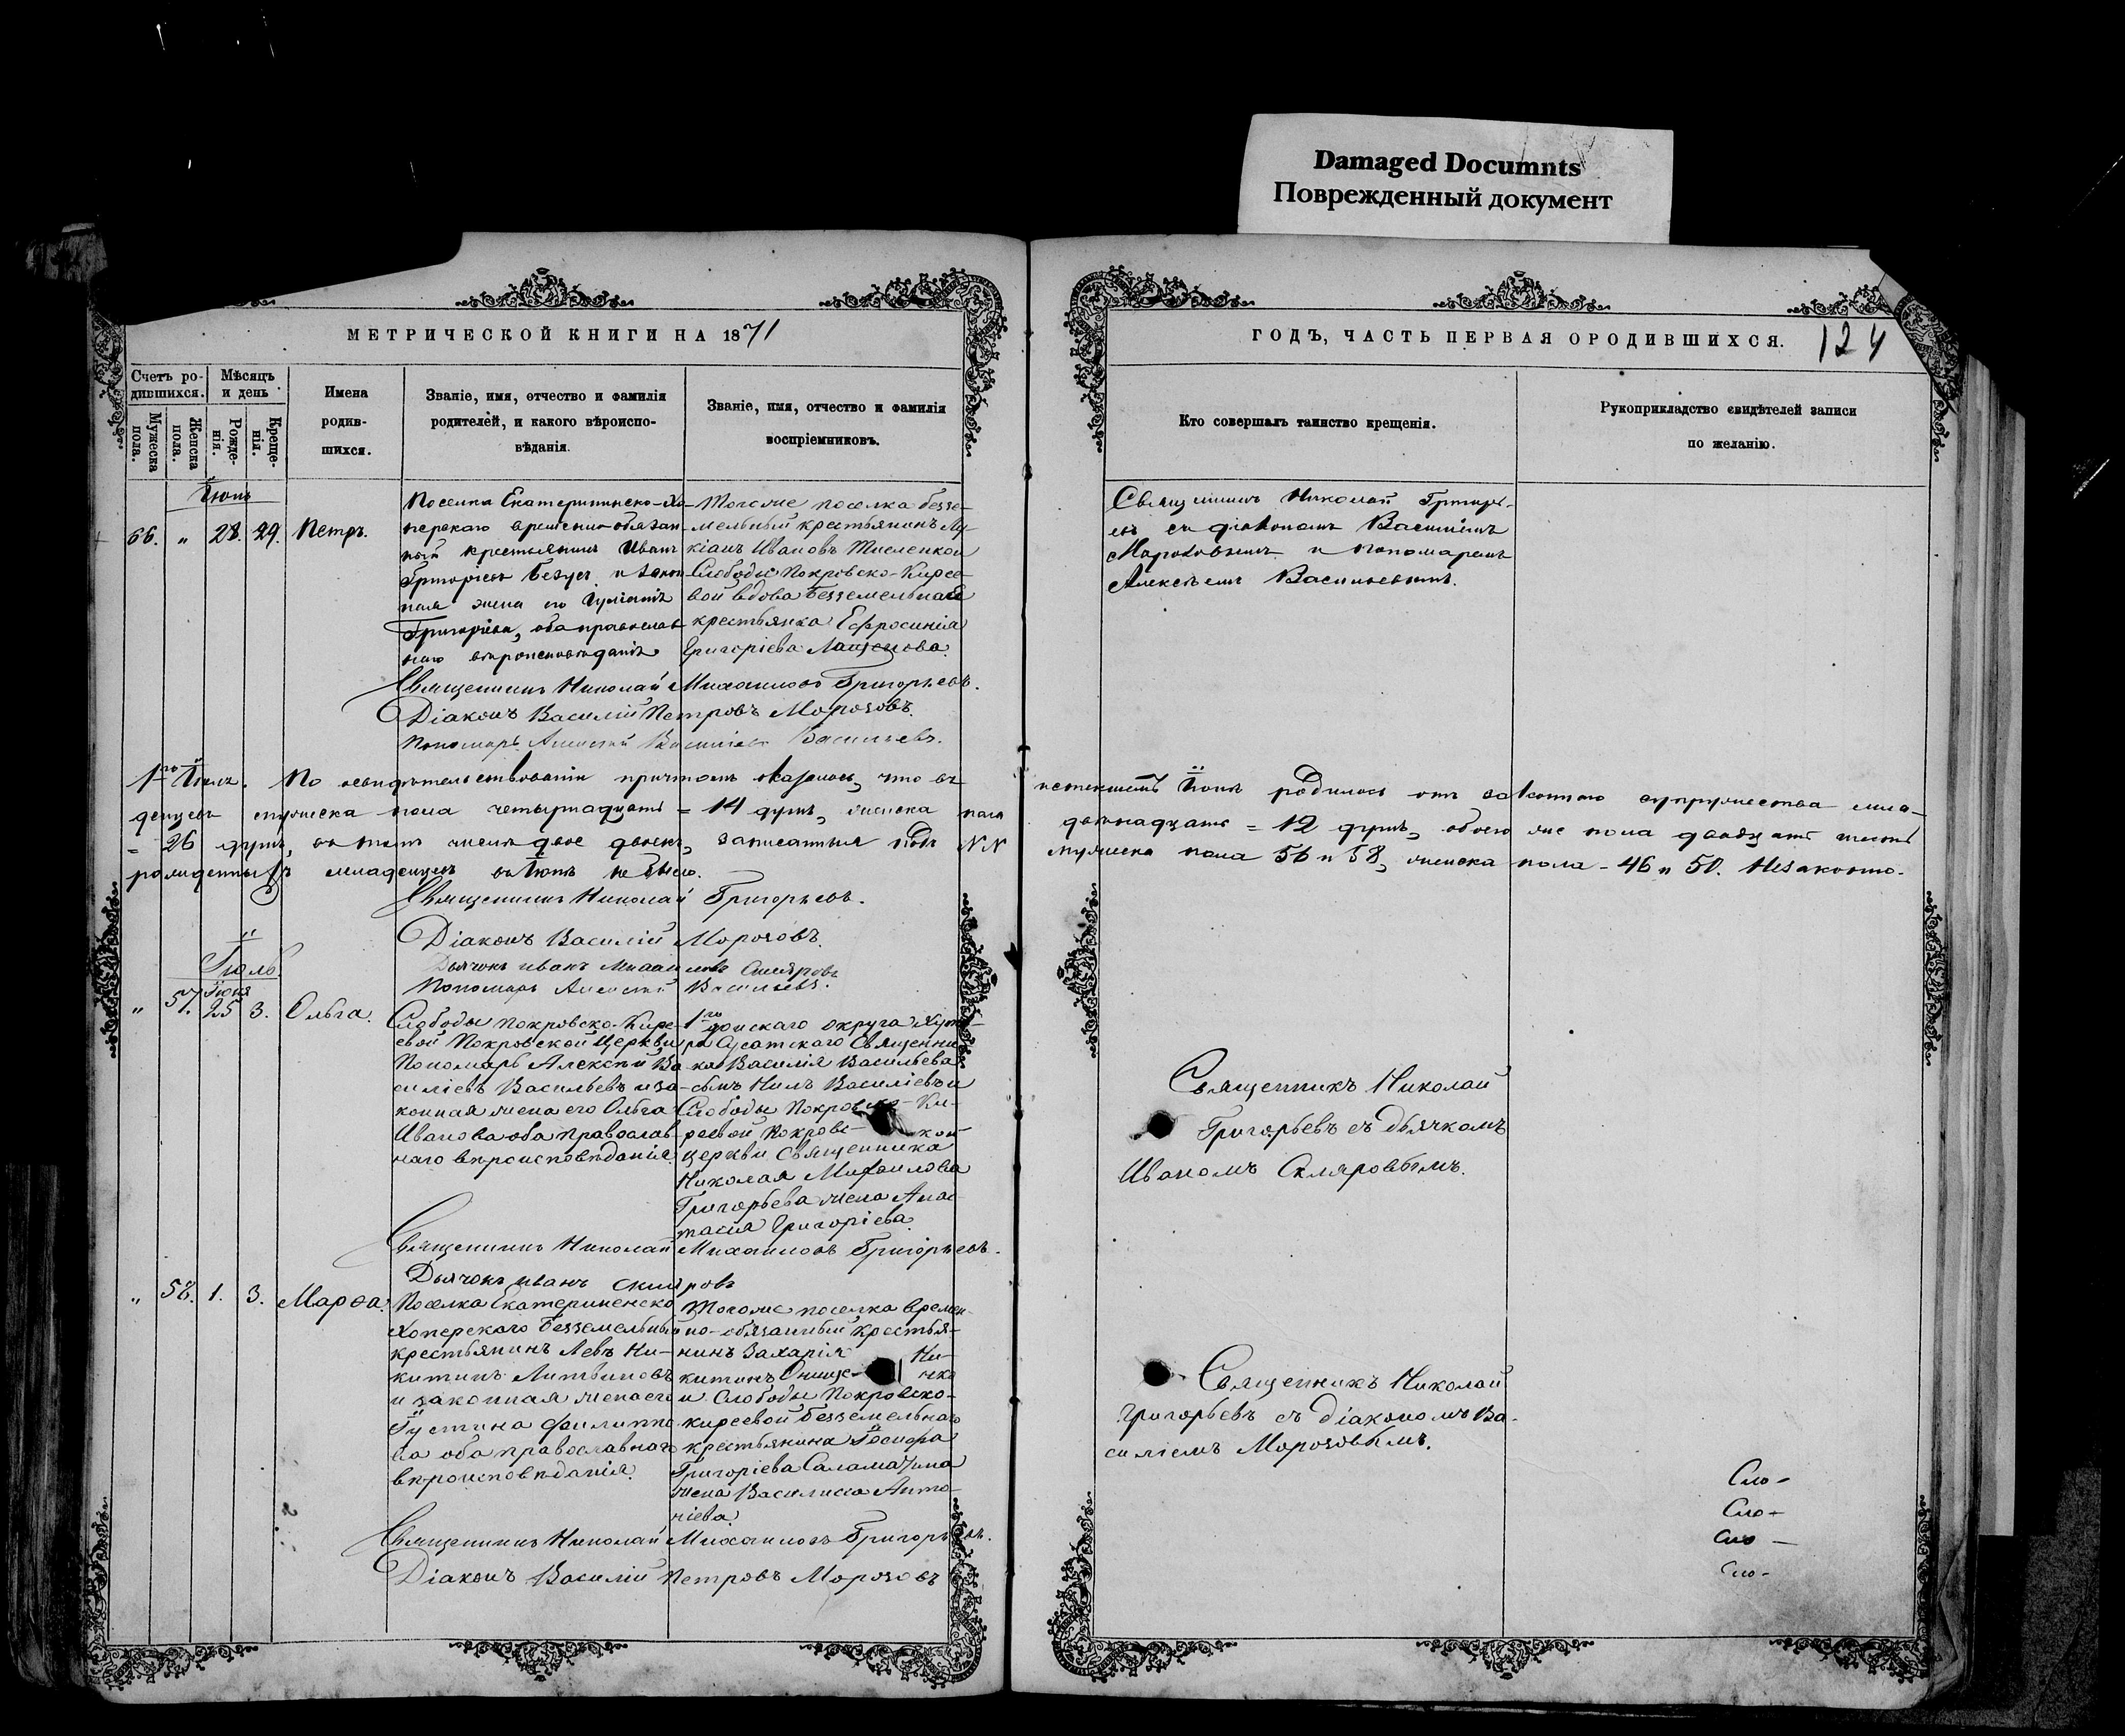 Damaged Documnts
Поврежденный документ
МЕТРИЧЕСКОЙ КНИГИ НА 1871
ГОДЪ, ЧАСТЬ ПЕРВАЯ О РОДИВШИХСЯ.
124
Счетъ ро-
дившихся.
Мужеска пола.
Женска пола.
Мѣсяцъ
и день
Рожде-
нія.
Креще-
нія.
Имена
родив-
шихся.
Званіе, имя, отчество и фамилія
родителей, и какого вѣроиспо-
вѣданія.
Званіе, имя, отчество и фамилія
воспріемниковъ.
Кто совершалъ таинство крещенія.
Рукоприкладство свидѣтелей записи
по желанію.
Іюнь
66. „ 28. 29. Петръ.
Поселка Екатерининско-Хо-
перскаго временно-обязан-
ный крестьянинъ Иванъ
Григорьевъ и закон-
ная жена его
Григоріева, оба православ
наго вѣроисповѣданія
Тогоже поселка беззе-
мельный крестьянинъ Лу-
кіанъ Ивановъ
Слободы Покровско-Кирее-
вой вдова безземельная
крестьянка Ефросинія
Григоріева
Священникъ Николай Григорь-
евъ съ діакономъ Василіемъ
Морозовымъ и пономаремъ
Алексѣемъ Васильевымъ.
Священникъ Николай Михаиловъ Григорьевъ.
Діаконъ Василій Петровъ Морозовъ.
Пономарь Алексѣй Василіевъ Васильевъ.
1го Іюля. По освидѣтельствованіи причтомъ оказалось, что въ
истекшемъ Іюнѣ родилось отъ законнаго супружества мла-
денцевъ мужеска пола четырнадцать = 14 душъ, женска пола
двѣнадцать = 12 душъ, обоего же пола двадцать шесть
= 26 душъ, въ томъ числѣ двое двоенъ, записанныя подъ NN
мужеска пола 56 и 58, женска пола - 46 и 50. Незаконно-
рожденныхъ младенцевъ въ Іюнѣ не было.
Священникъ Николай Григорьевъ.
Діаконъ Василій Морозовъ.
Дьячокъ Иванъ Скляровъ
Пономарь Алексѣй Васильевъ.
Іюль
Іюня
„ 57. 25 3. Ольга.
Слободы Покровско-Кире-
евой Покровской Церкви
Пономарь Алексѣй Ва
силіевъ Васильевъ и за-
конная жена его Ольга
Иванова оба православ
наго вѣроисповѣданія.
1го донскаго округа Хуто-
ра Сусатскаго Священни
ка Василія Васильева
сынъ Нилъ Василіевъ и
Слободы Покровско-Ки-
реевой Покровс- кой
церкви Священника
Николая Михаилова
Григорьева жена Анас
тасія Григоріева.
Священникъ Николай
Григорьевъ съ дьячкомъ
Иваномъ Скляровымъ.
Священникъ Николай Михаиловъ Григорьевъ.
Дьячокъ Иванъ Скляровъ
„ 58. 1. 3. Марѳа.
Поселка Екатериненско
Хоперскаго безземельный
крестьянинъ Левъ Ни-
китинъ Литвиновъ
и законная жена его
Іустина Филиппо
ва оба православнаго
вѣроисповѣданія.
Тогоже поселка времен-
но-обязанный крестья-
нинъ Захарія Ни-
китинъ Онище- нко
и Слободы Покровско-
киреевой безземельнаго
крестьянина
Григоріева Саламатина
жена Василиса Анто-
ніева.
Священникъ Николай
Григорьевъ съ діакономъ Ва-
силіемъ Морозовымъ.
Священникъ Николай Михаиловъ Григорьевъ.
Діаконъ Василій Петровъ Морозовъ